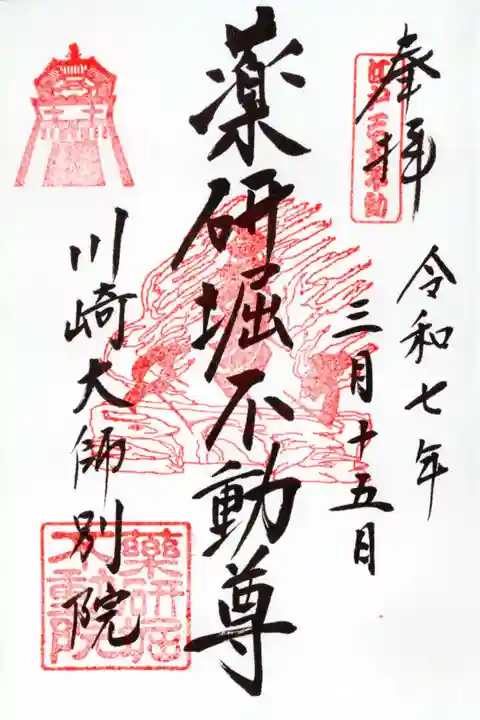 奉拝
令和七年
三月十五日
薬研堀不動尊
川崎大師別院
江戸三大不動
薬研堀
不動院